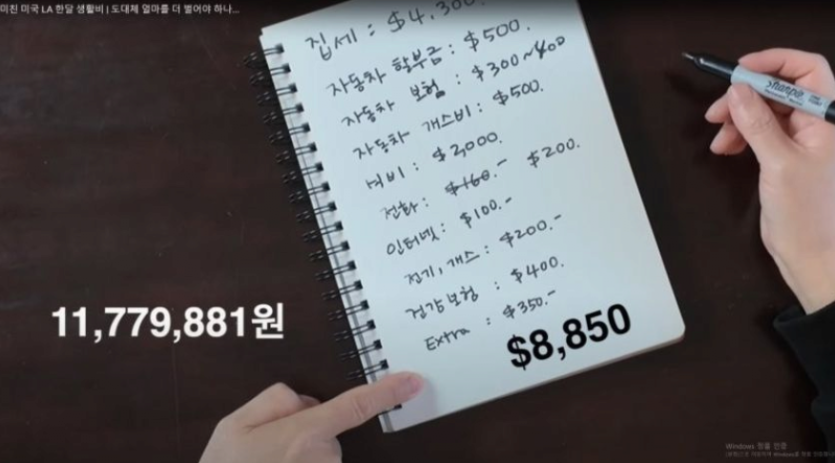 미친 미국 LA 한달 생활비 | 도대체 얼마를 더 벌어야 하나...
집세 : $4,300
자동차 할부금 : $500.
자동차 보험 : $300~400
자동차 개스비 : $500.
식비 : $2,000.
전화 : $160.- $200.
인터넷 : $100.-
전기, 개스 : $200.-
건강보험 : $400.
Extra : $350.-
$8,850
11,779,881원
Sharpie
Windows 정품 인증